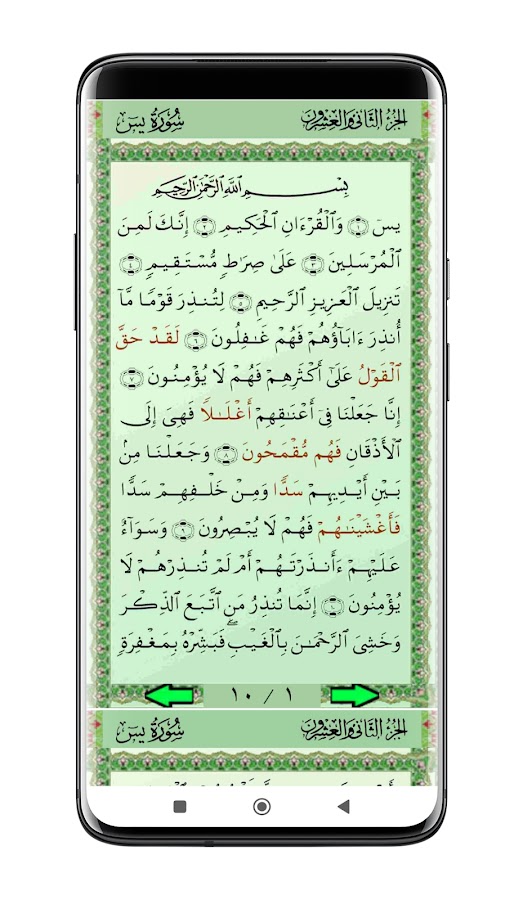 الجزء الثاني والعشرون سورة يس
بِسْمِ ٱللَّهِ ٱلرَّحْمَٰنِ ٱلرَّحِيمِ
يسٓ ١ وَٱلْقُرْءَانِ ٱلْحَكِيمِ ٢ إِنَّكَ لَمِنَ
ٱلْمُرْسَلِينَ ٣ عَلَىٰ صِرَٰطٍ مُّسْتَقِيمٍ ٤
تَنزِيلَ ٱلْعَزِيزِ ٱلرَّحِيمِ ٥ لِتُنذِرَ قَوْمًا مَّآ
أُنذِرَ ءَابَآؤُهُمْ فَهُمْ غَٰفِلُونَ ٦ لَقَدْ حَقَّ
ٱلْقَوْلُ عَلَىٰٓ أَكْثَرِهِمْ فَهُمْ لَا يُؤْمِنُونَ ٧
إِنَّا جَعَلْنَا فِىٓ أَعْنَٰقِهِمْ أَغْلَٰلًا فَهِىَ إِلَى
ٱلْأَذْقَانِ فَهُم مُّقْمَحُونَ ٨ وَجَعَلْنَا مِنۢ
بَيْنِ أَيْدِيهِمْ سَدًّا وَمِنْ خَلْفِهِمْ سَدًّا
فَأَغْشَيْنَٰهُمْ فَهُمْ لَا يُبْصِرُونَ ٩ وَسَوَآءٌ
عَلَيْهِمْ ءَأَنذَرْتَهُمْ أَمْ لَمْ تُنذِرْهُمْ لَا
يُؤْمِنُونَ ١٠ إِنَّمَا تُنذِرُ مَنِ ٱتَّبَعَ ٱلذِّكْرَ
وَخَشِىَ ٱلرَّحْمَٰنَ بِٱلْغَيْبِ ۖ فَبَشِّرْهُ بِمَغْفِرَةٍ
١ / ١٠
الجزء الثاني والعشرون سورة يس